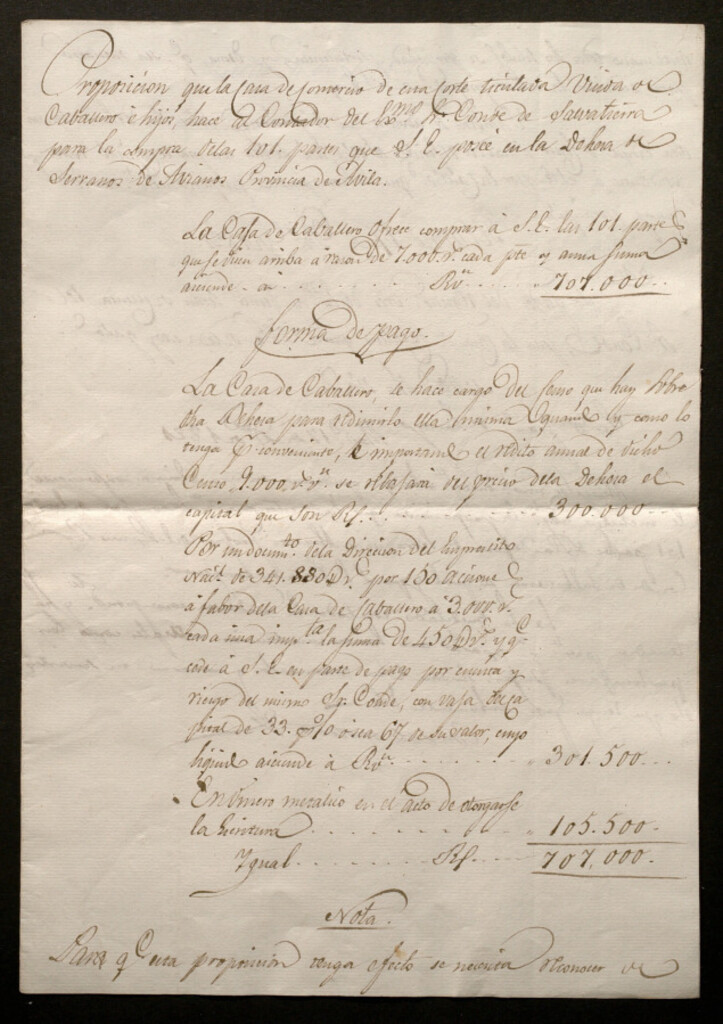 Proposicion que la Casa de Comercio de esta Corte titulada Viuda de
Caballero é hijos, hace al Contador del Exmo. Sr. Conde de Salvatierra
para la compra delas 101. partes que S. E. posée en la Dehesa de
Serranos de Avianos Provincia de Avila.
La Casa de Caballero ofrece comprar á S. E. las 101. partes
que se citan arriba á razon de 7.000 rs. cada pte y cuya suma
asciende á Rvn 707.000
forma de pago.
La Casa de Caballero, se hace cargo del Censo que hay sobre
dha Dehesa para redimirlo ella misma quando y como lo
tenga por conveniente, é importando el rédito anual de dicho
Censo 9.000 rs vn se rebajará del precio dela Dehesa el
capital que son Rs. 300.000
Por un docum.to dela Direccion del Empréstito
Nacl. de 341.880 D rs. por 150 acciones
á favor dela Casa de Caballero á 3.000 rs.
cada una impta la suma de 450 D rs. y qe
cede á S. E. en parte de pago por cuenta y
riesgo del mismo Sr. Conde, con vaja en ca
pital de 33. p%o ó sea 67 de su valor, cuyo
líquido asciende á Rvn. 301.500
En dinero metalico en el acto de otorgarse
la Escritura 105.500
Ygual Rs. 707.000
Nota.
Para qe esta proposicion tenga efecto se necesita reconocer de